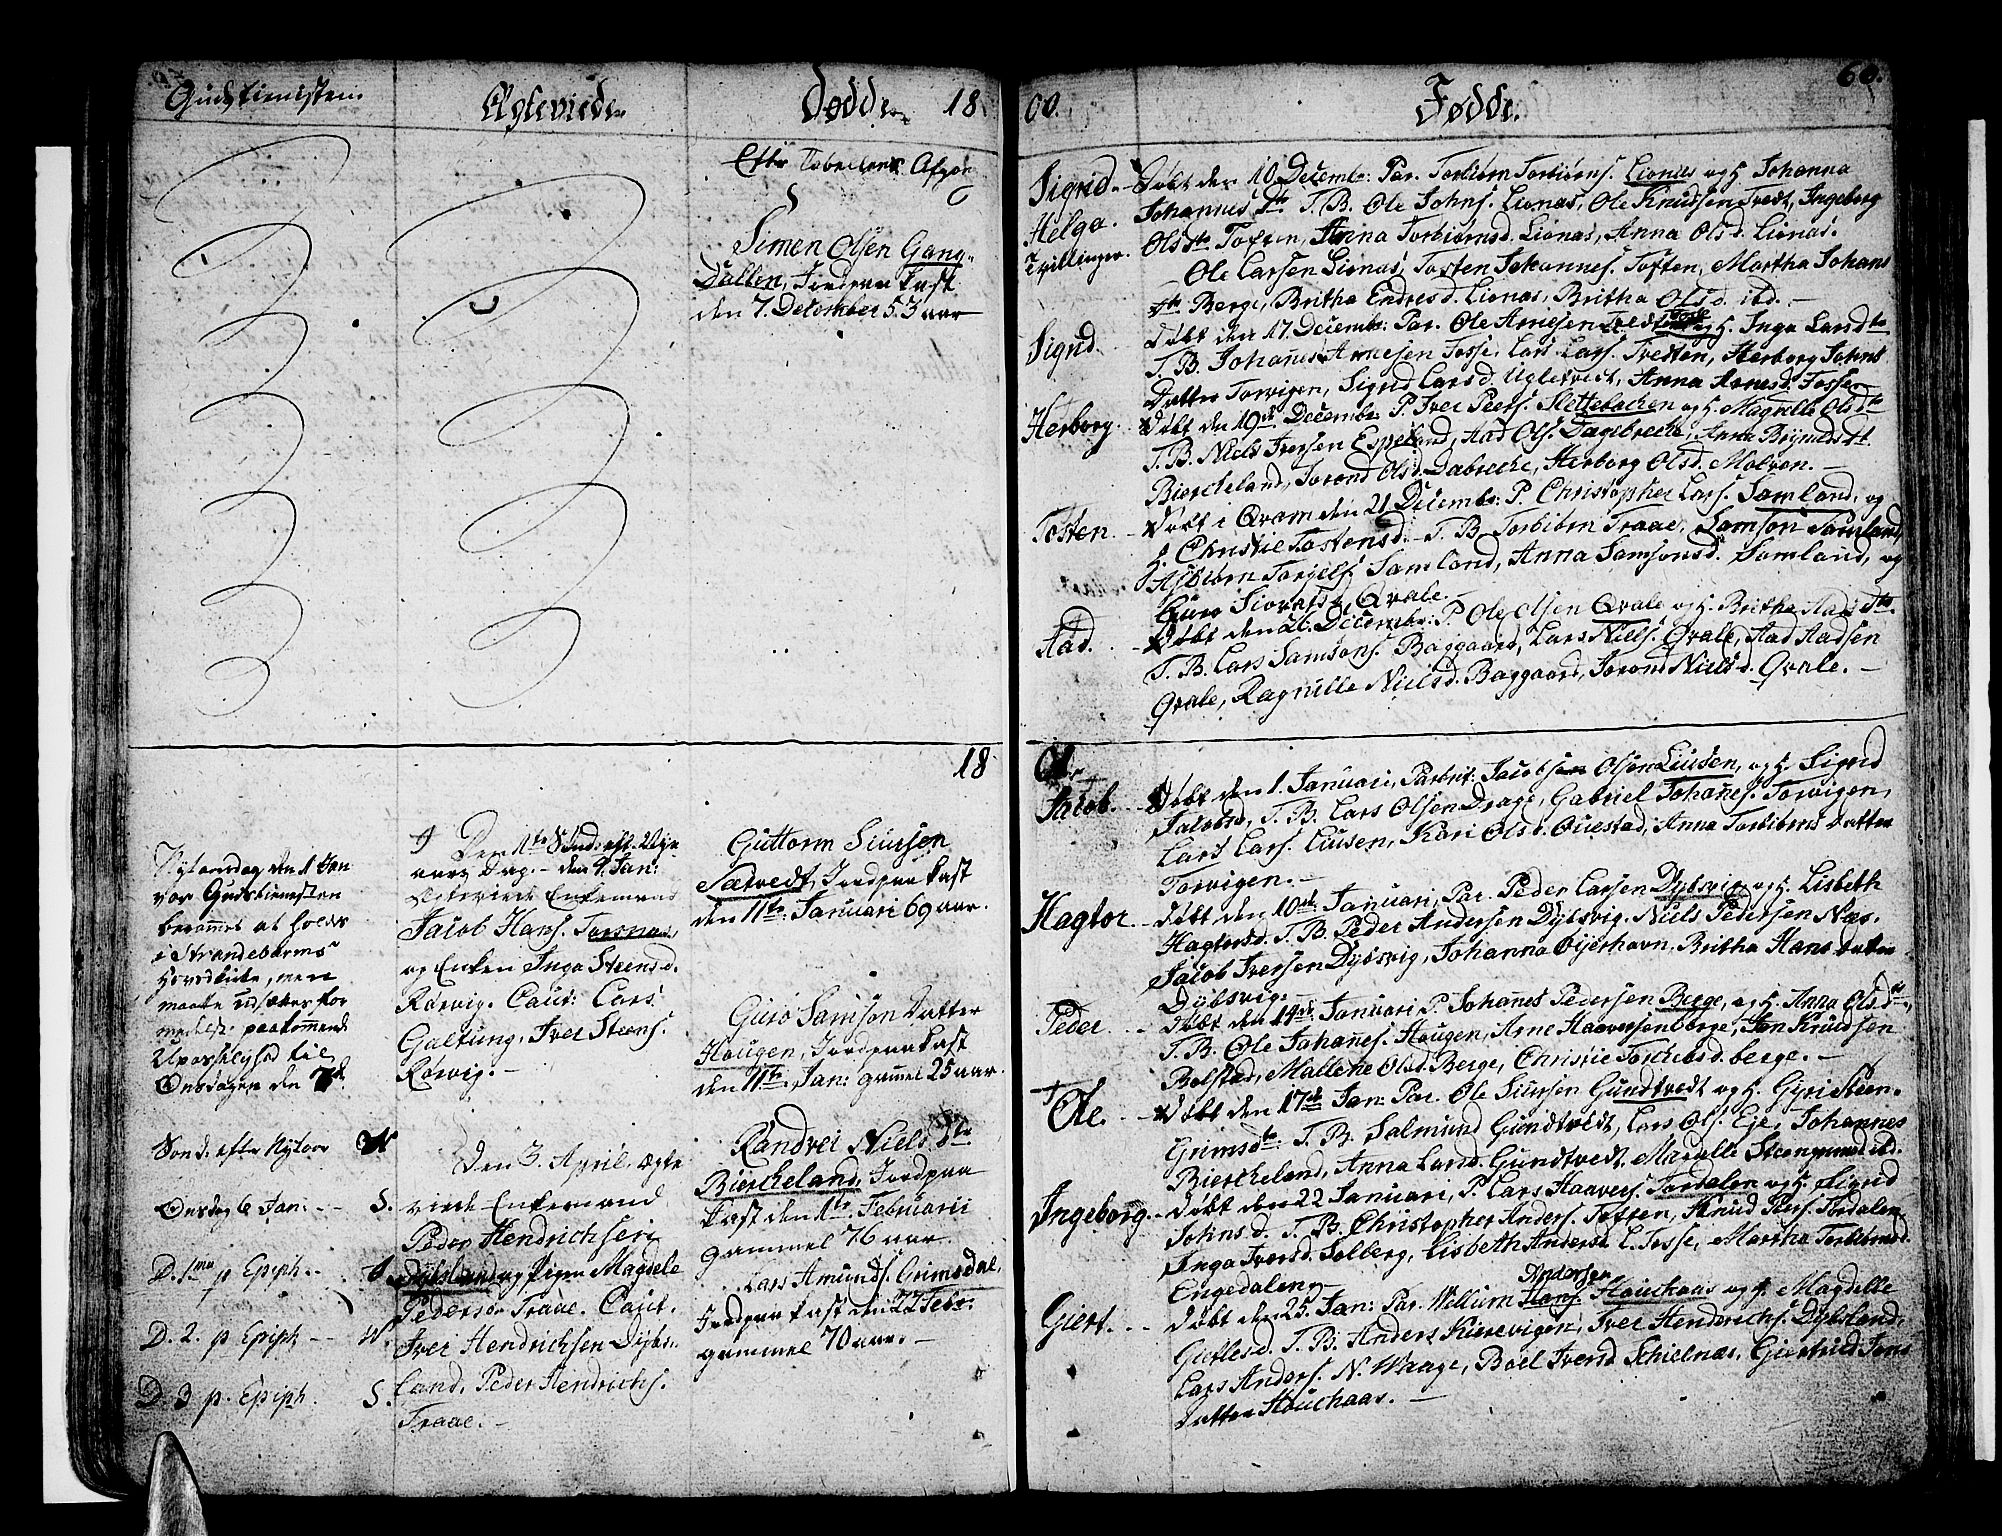 Gudstienisten.
Ægteviede
Dødde
18
00.
Fødde.
60.
Efter Tabellens Afgan
Simen Olsen Gang-
Dallen, Jordpaakast
den 7. December 53 aar
Sigrid
Helga.
Tvillinger.
Døbt den 10 Decembr: Par. Torbiørn Torbiørns. Lionæs og H. Johanna
Johannes Dtr T. B. Ole Johns. Lionas, Ole Knudsen Tvedt, Ingeborg
Olsdtr Toften, Anna Torbiørnsd. Lionas, Anna Olsd. Lionas.
Ole Larsen Lionas, Tosten Johannes. Toften, Martha Johans
dtr Berge, Britha Endresd. Lionas, Britha Olsd. ibd.
Sigrid.
Døbt den 17 Decembr: Par. Ole Arnesen Tosse og H. Inga Larsdtr
T. B. Johanes Arnesen Tosse, Lars Lars. Tvedten, Herborg Johns
Datter Torvigen, Sigrid Larsd. Ugletvedt, Anna Arnesd. Tosse
Herborg.
Døbt den 19de Decembr: P. Iver Peers. Slettebacken og H. Magnille Olsdtr
T. B. Niels Iversen Espeland, Aad Ols. Dagebreche, Anna Brynilds dt
Biercheland, Jorond Olsd. Dabreche, Herborg Olsd. Molven.
Tosten.
Døbt i Qvam den 21 Decembr: P. Christopher Lars. Samland, og
H. Christie Tostensd. T. B. Torbiørn Traae, Samson Samland,
Asbiørn Torgels. Samland, Anna Samsonsd. Samland, og
Guro Siovatsd. Qvale.
Aad.
Døbt den 26. Decembr: P. Ole Olsen Qvale og H. Britha Aads dtr.
T. B. Lars Samsons. Baggaard, Lars Niels. Qvale, Aad Aadsen
Qvale, Ragnille Nielsd. Baggaard, Jorond Nielsd. Qvale.
18
01
Nytaarsdag den 1 Jan
var Gudstienisten
berammet at holdes
i Strandebarms
Hovedkirke, men
maatte udsættes for
medelst paakommende
Upasselighed til
Onsdagen den 7de.
Sond. efter Nytaar N
Onsdag 6 Jan: S.
D. 1ma p Epiph. V
D. 2. p Epiph W.
D. 3 p. Epiph. S.
Den 1te Sond: eft. Nye
aars Dag. den 4 Jan:
Ægteviede Enkemand
Jacob Hans. Torsnas,
og Enken Inga Steensd.
Rørvig. Caut: Lars
Galtung, Iver Steens.
Rørvig.
Den 3. April, ægte
viede Enkemand
Peder Hendrichsen
Dybsland og Pigen Magdele
Pedersdr Traae. Caut.
Iver Hendrichsen Dybs-
land, Peder Hendrichs.
Traae.
Guttorm Siursen
Sætvedt, Jordpaakast
den 11te Januari 69 aar.
Guro Samson Datter
Hougen, Jordpaakast
den 11te. Jan: gamel 25 aar.
Randvei Niels. Dtr
Biercheland, Jordpaa
kast den 1te. Februarii
gammel 76 aar
Lars Amunds. Grimsdal,
Jordpaakast den 22 Febr:
gammel 70 aar.
Jacob.
Døbt den 1. Januari, Par: Jacob Olsen Liusen, og H. Sigrid
Jacobsd, T. B. Lars Olsen Drage, Gabriel Johanes. Torvigen,
Lars Lars. Liusen, Kari Olsd. Qvestad, Anna Torbiørns Datter
Torvigen.
Hagtor.
Døbt den 10de Januari, Par. Peder Larsen Dybsvig og H. Lisbeth
Hagtorsd. T. B. Peder Andersen Dybsvig. Niels Pedersen Næs.
Jacob Iversen Dybsvig, Johanna Øijerhavn, Britha Hans datter
Dybsvig.
Peder
Døbt den 14de Januari P. Johanes Pedersen Berge, og H. Anna Olsdtr,
T. B. Ole Johanes. Hougen, Arne Haaversen berge, Jon Knudsen
Bolstad, Mallene Olsd. Berge, Christie Torkelsd. berge.
Ole.
Døbt den 17de Jan: Par. Ole Siursen Gundtvedt og H. Gyri Steen-
Grimsdtr: T. B. Salmund Gundtvedt, Lars Ols. Eje, Johannes
Biercheland, Anna Larsd. Gundtvedt, Magdelle Steengrimsd ibd.
Ingeborg.
Døbt den 22 Januari, P. Lars Haavers. Tordalen og H. Sigrid
Johnsd. T. B. Christopher Anders. Toften, Knud Pers. Tordalen
Inga Iversd. Solberg, Lisbeth Andersd. L. Tosse, Martha Torbiørnsd.
Engedalen
Giert.
Døbt den 25. Jan: Par. Wellium Andersen Houchaas og H. Magdelle
Gutlesd. T. B. Anders Kierevigen, Iver Henderichs. Dybsland,
Lars Anders. N. Waage, Boel Iversd Schielnæs, Giertrud Jens
datter Houchaas.